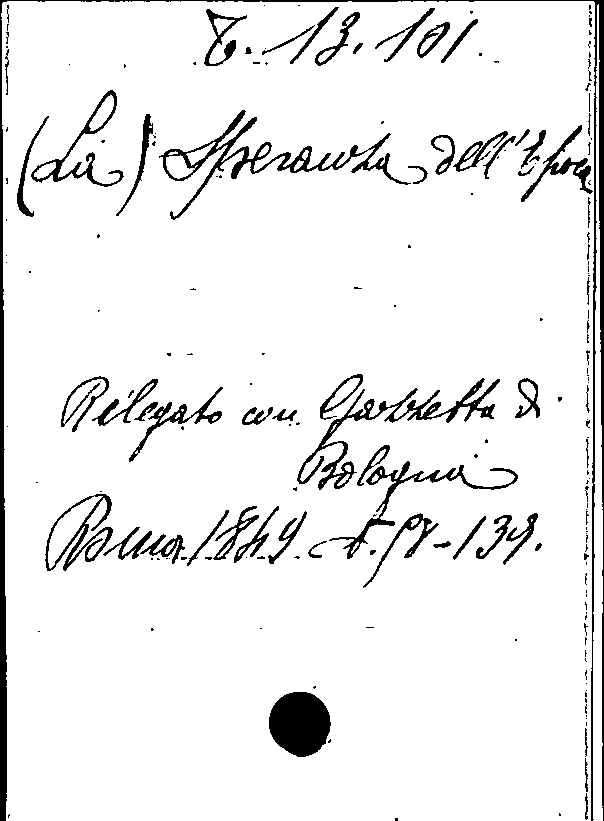 T. 13. 101
(La) Speranza dell'Epoca
Rilegato con Gazzetta di
Bologna
Roma 1849 139.